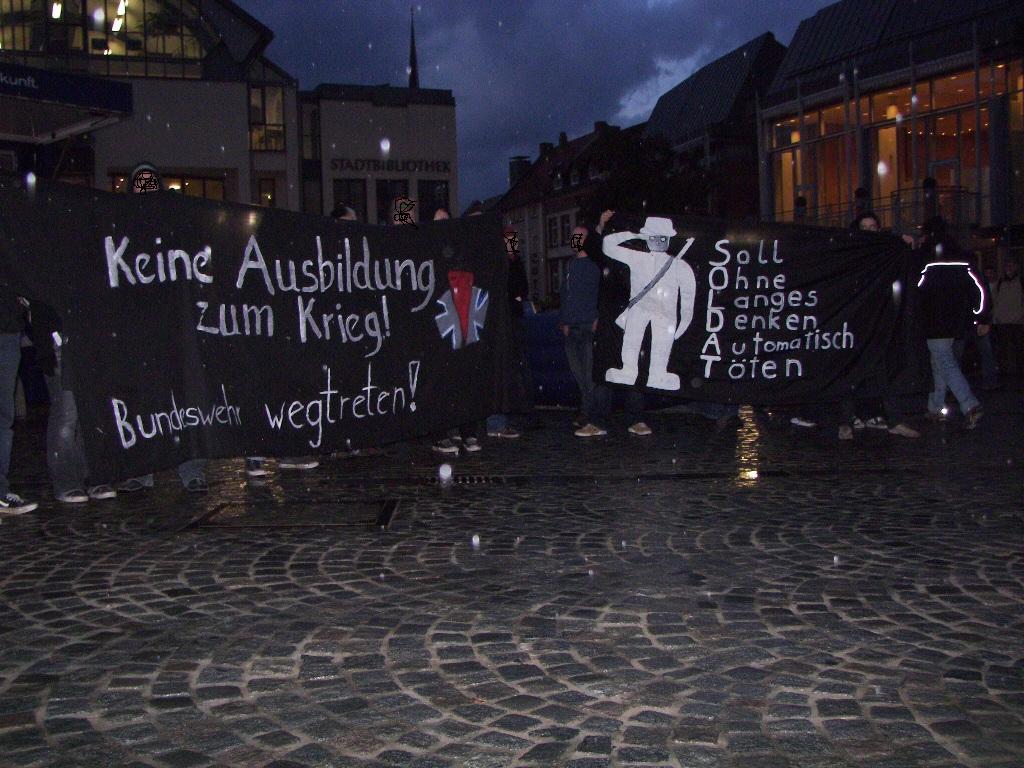 kunft
STADTBIBLIOTHEK
Keine Ausbildung
zum Krieg!
Bundeswehr wegtreten!
Soll
Ohne
Langes
Denken
Automatisch
Töten